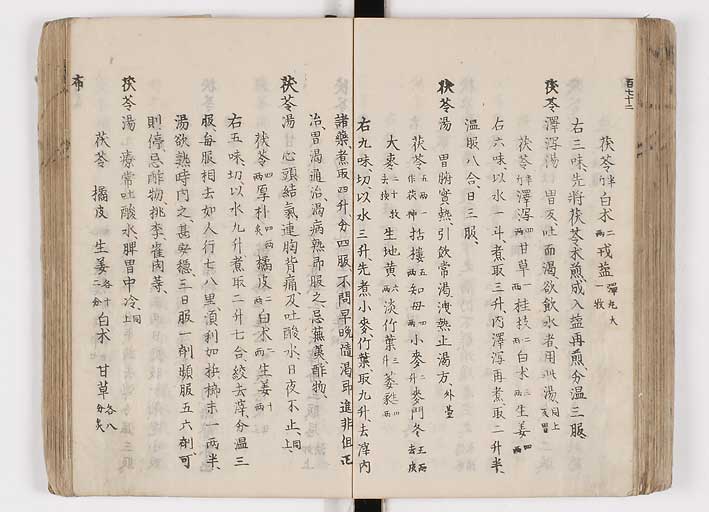 百七十二
茯苓半斤白朮二兩戎塩彈丸大一枚
右三味、先將茯苓朮煎成、入塩再煎、分溫三服、
茯苓澤瀉湯 胃反吐而渴欲飲水者用此湯、
茯苓半斤澤瀉四兩甘草一兩桂枝二兩白朮三兩生姜四兩
右六味以水一斗、煮取三升、內澤瀉再煮取二升半、
溫服八合、日三服、
茯苓湯 胃腑實熱引飲常渴、洩熱止渴方、外臺
茯苓五兩一作茯神栝樓五兩知母四兩小麥二升麥門冬五兩去心
大棗二十枚去核生地黃六兩淡竹葉三升萎蕤四兩
右九味切、以水三升、先煮小麥竹葉取九升、去滓內
諸藥、煮取四升、分四服、不問早晚隨渴即進、非但正
治、胃渴通治、渴病熱即服之、忌蕪荑酢物、
茯苓湯 甘心頭結氣連胸背痛及吐酸水、日夜不止、同上
茯苓四兩厚朴四兩炙橘皮二兩白朮二兩生姜十兩
右五味切、以水九升煮取二升七合絞去滓、分溫三
服、每服相去如人行七八里、須利加檳榔末一兩半、
湯欲熟時內之、甚安穩、三日服一劑、頻服五六劑可、
則停、忌酢物桃李雀肉等、
茯苓湯 療常吐酸水脾胃中冷、同上
茯苓 橘皮 生姜各十二分白朮 甘草各八分炙
布